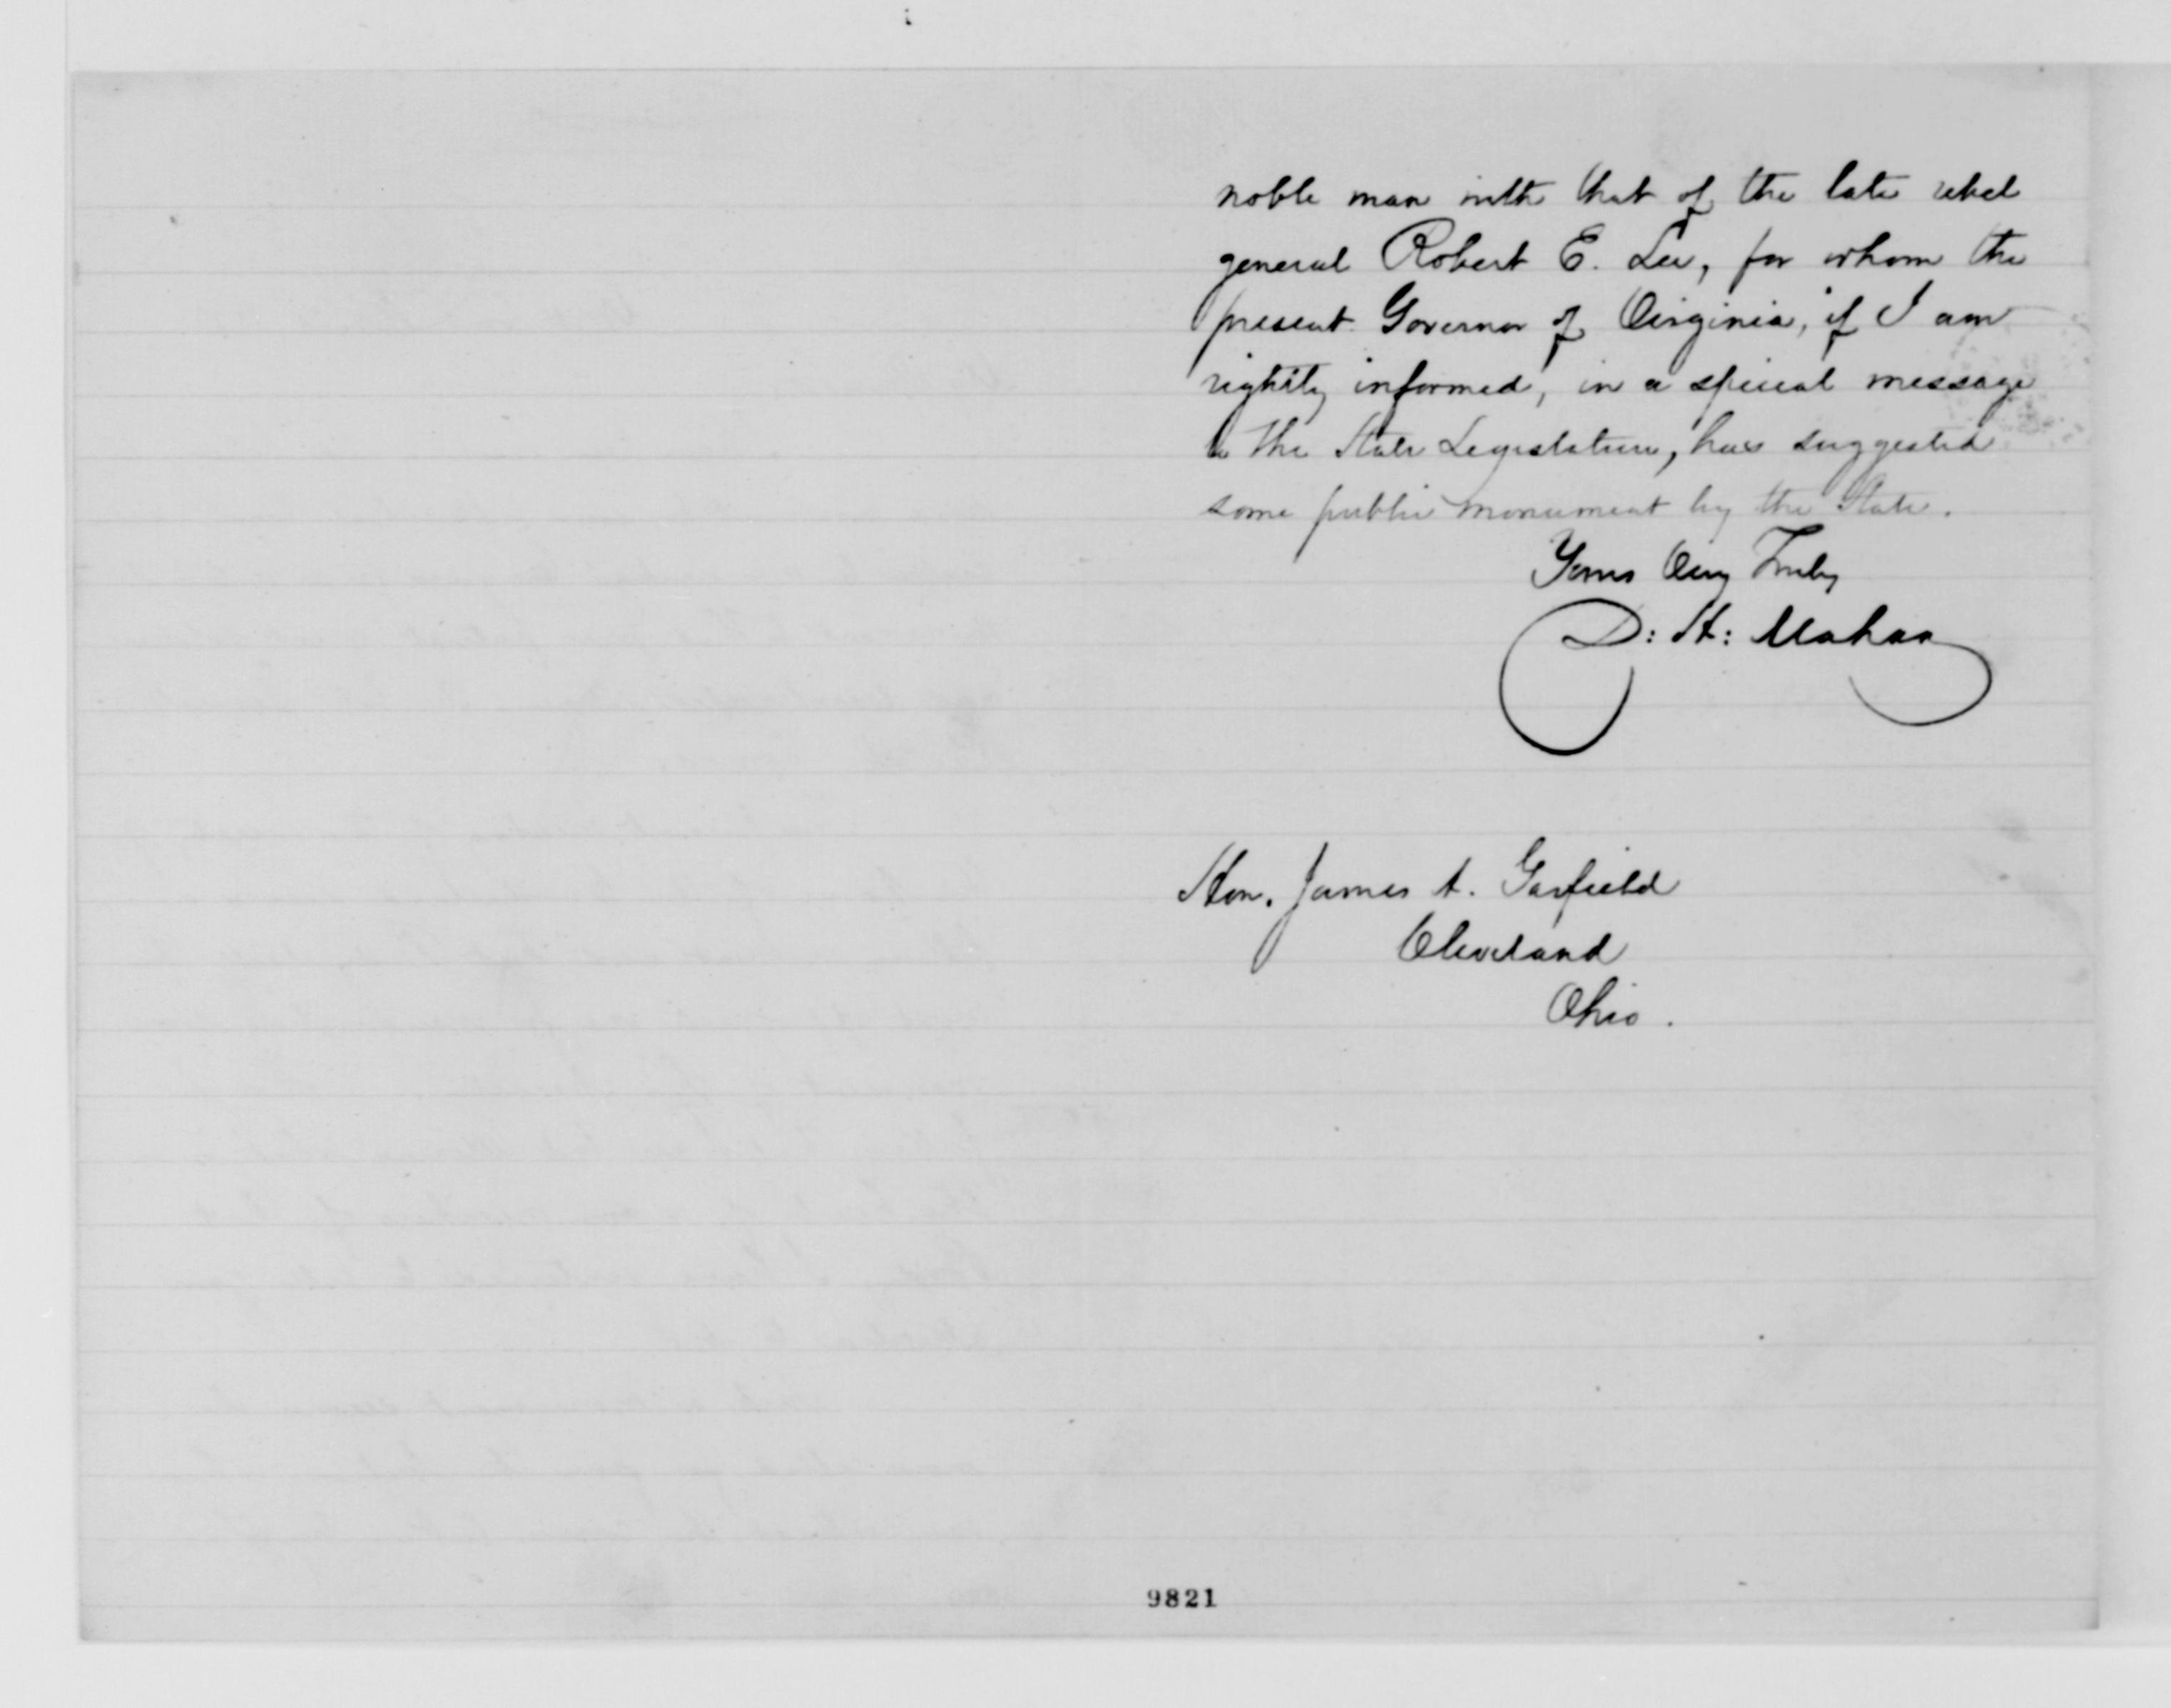 noble man with that of the late rebel
general Robert E. Lee, for whom the
present Governor of Virginia, if I am
rightly informed, in a special message
to the State Legislature, has suggested
some public monument by the State.
Yours Very Truly
D: H: Mahan
Hon. James A. Garfield
Cleveland
Ohio.
9821